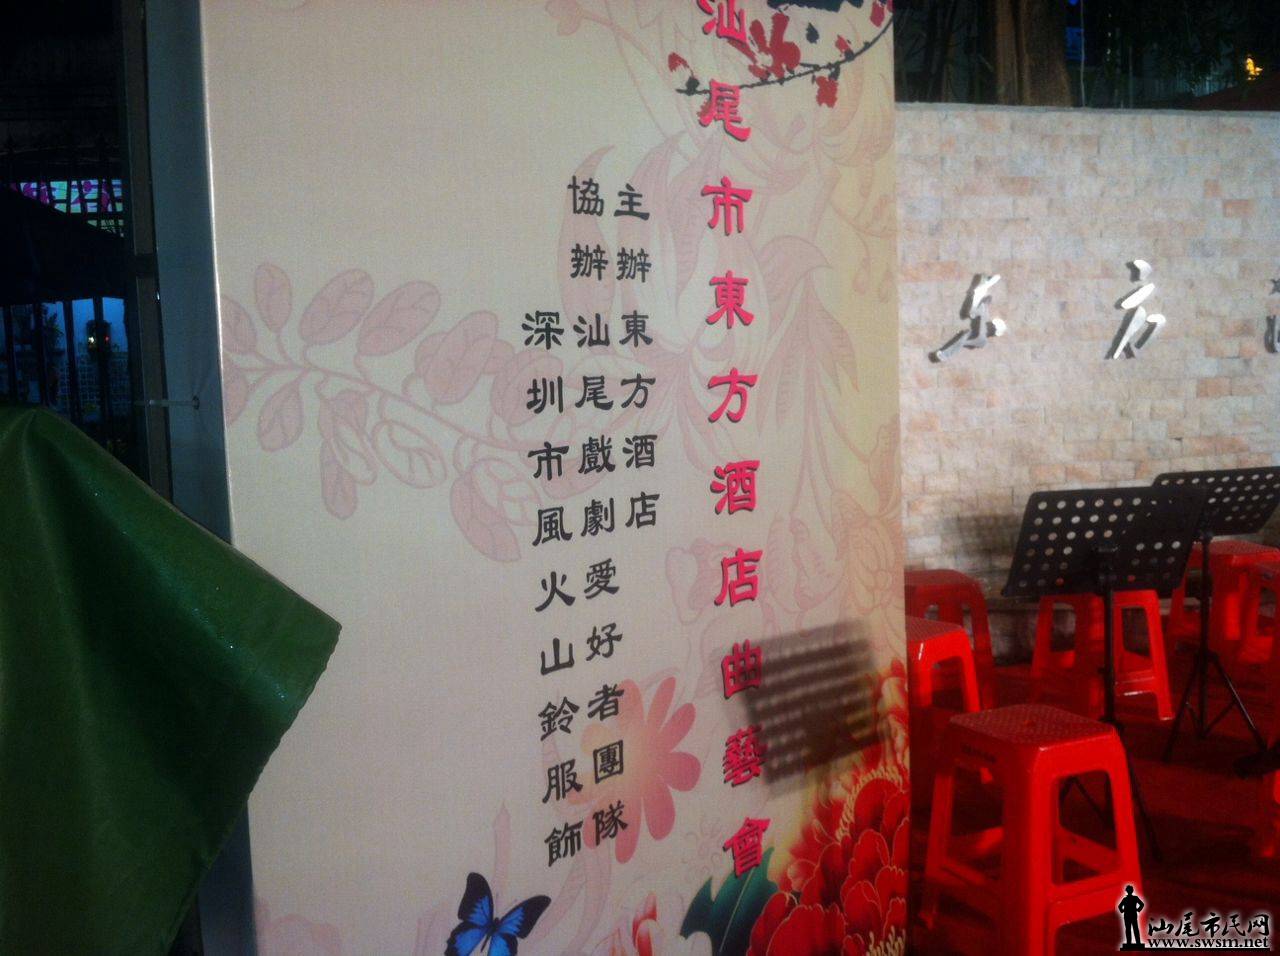 汕尾市東方酒店曲藝會
主辦東方酒店
協辦汕尾戲劇愛好者團隊
深圳市風火山鈴服飾
东方酒
汕尾市民网
www.swsm.net